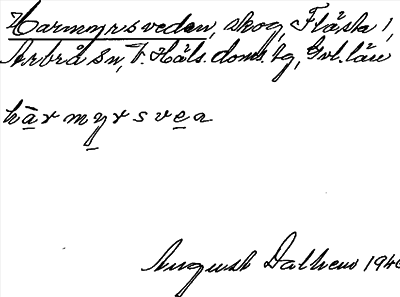 Harmyrsveden, skog, Flästa 1,
Arbrå sn, V. Häls. doms. tg, Gvl. län
hàrmyrsvea
August Dalhem 194